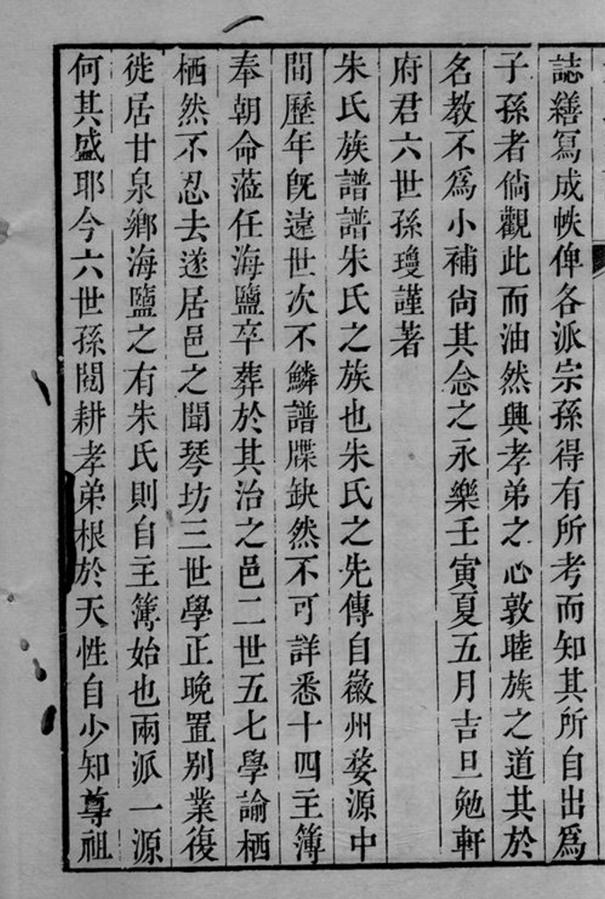 誌繕寫成帙俾各派宗孫得有所考而知其所自出爲
子孫者倘觀此而油然興孝弟之心敦睦族之道其於
名教不爲小補尙其念之永樂壬寅夏五月吉旦勉軒
府君六世孫瓊謹著
朱氏族譜譜朱氏之族也朱氏之先傳自徽州婺源中
間歷年旣遠世次不鱗譜牒缺然不可詳悉十四主簿
奉朝命蒞任海鹽卒葬於其治之邑二世五七學諭栖
栖然不忍去遂居邑之聞琴坊三世學正晩置别業復
徙居甘泉鄉海鹽之有朱氏則自主簿始也兩派一源
何其盛耶今六世孫閱耕孝弟根於天性自少知尊祖